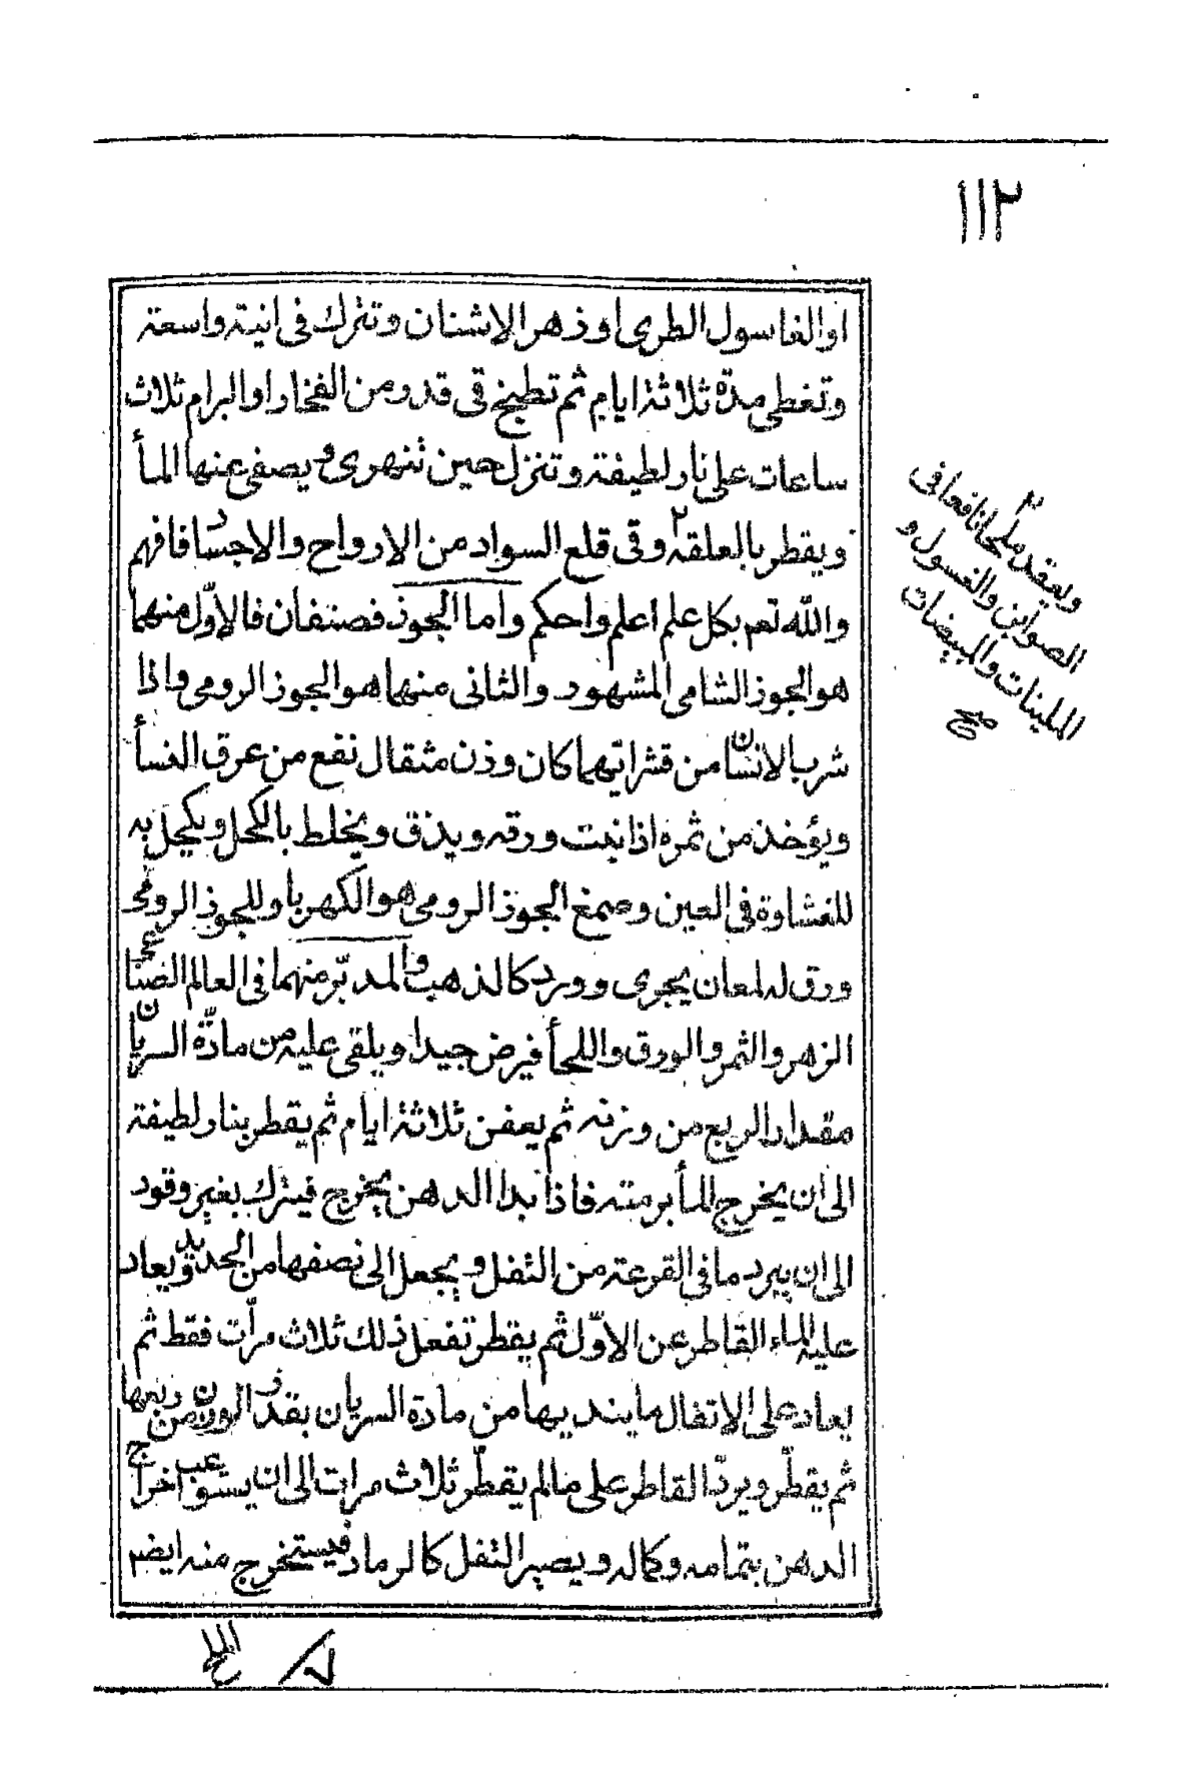 ١١٢
او الغاسول الطرى او ذهر الاشنان وتترك فى انية واسعة
وتغطى مدة ثلاثة ايام ثم تطبخ فى قدر من الفخار او البرام ثلاث
ساعات على نار لطيفة وتنزل حين تتهرى ويصفى عنها المأ
ويقطر بالعلقة٢ وفى قلع السواد من الارواح والاجساد فافهم
والله تعم بكل علم اعلم واحكم واما الجوز فصنفان فالاوّل منهما
هو الجوز الشامى المشهور والثانى منهما هو الجوز الرومى واذا
شرب الانسان من قشراتهما كان وزن مثقال نفع من عرق النسأ
ويؤخذ من ثمره اذا نبت ورقه ويدق ويخلط بالكحل ويكحل به
للغشاوة فى العين وصمغ الجوز الرومى هو الكهربا وللجوز الرومى
ورق له لمعان يجرى وورد كالذهب والمدبّر منهما فى العالم الصناعى
الزهر والثمر والورق واللحأ فيرض جيدا ويلقى عليه من مادّة السريان
مقدار الربع من وزنه ثم يعفن ثلاثة ايام ثم يقطر بنار لطيفة
الى ان يخرج المأ برمته فاذا بدا الدهن يخرج فيترك بغير وقود
الى ان يبرد ما فى القرعة من الثفل ويجعل الى نصفها من الحديد ويعاد
عليه الماء القاطر عن الاوّل ثم يقطر تفعل ذلك ثلاث مرّات فقط ثم
يعاد على الاتفال ما ينديها من مادة السريان بقدر الوزن من ربعها
ثم يقطّر ويردّ القاطر على ما لم يقطّر ثلاث مرات الى ان يستوعب اخراج
الدهن بتمامه وكماله ويصير الثفل كالرماد فيستخرج منه ايضر
٢
ويعقد ملحا نافعا فى
الصوابن والغسول و
الملينات والمبيضات
صح
الملح